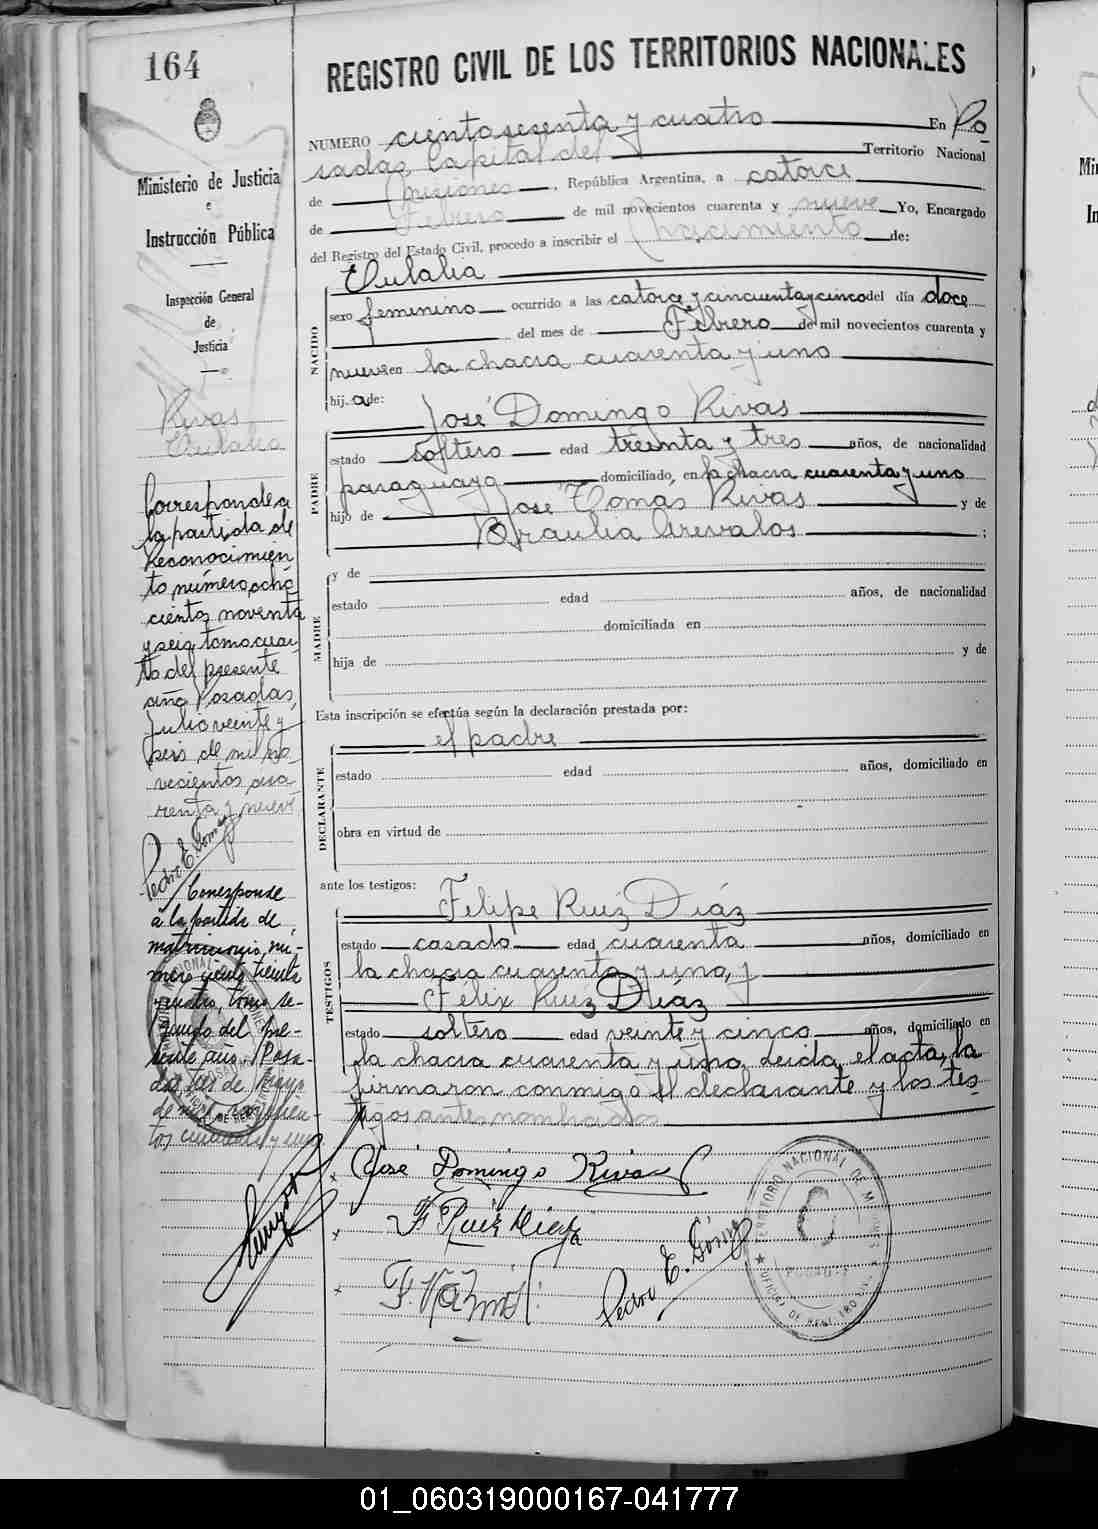 164
REGISTRO CIVIL DE LOS TERRITORIOS NACIONALES
Ministerio de Justicia
e
Instrucción Pública
Inspección General
de
Justicia
Rivas
Eulalia
Corresponde a
la partida de
Reconocimien
to número ocho
cientos noventa
y seis tomo cuar
to del presente
año Posadas,
Julio veinte y
seis de mil no
vecientos cua
renta y nueve
Pedro E. Gómez
Corresponde
a la partida de
matrimonio, nú-
mero ciento treinta
y cuatro, tomo se-
gundo del pre-
sente año. Posa-
das tres de Mayo
de mil novecien-
tos cincuenta y uno
NUMERO ciento sesenta y cuatro En Po
sadas, Capital del Territorio Nacional
de Misiones, República Argentina, a catorce
de Febrero de mil novecientos cuarenta y nueve Yo, Encargado
del Registro del Estado Civil, procedo a inscribir el Nacimiento de:
NACIDO
Eulalia
sexo femenino ocurrido a las catorce y cincuenta y cinco del día doce
del mes de Febrero de mil novecientos cuarenta y
nueve en la chacra cuarenta y uno
hij a de:
PADRE
José Domingo Rivas
estado soltero edad treinta y tres años, de nacionalidad
paraguaya domiciliado, en la chacra cuarenta y uno
hijo de José Tomás Rivas y de
Braulia Arevalos ;
MADRE
y de
estado edad años, de nacionalidad
domiciliada en
hija de y de
Esta inscripción se efectúa según la declaración prestada por:
DECLARANTE
el padre
estado edad años, domiciliado en
obra en virtud de
ante los testigos:
TESTIGOS
Felipe Ruiz Díaz
estado casado edad cuarenta años, domiciliado en
la chacra cuarenta y uno, y
Félix Ruiz Díaz
estado soltero edad veinte y cinco años, domiciliado en
la chacra cuarenta y uno. Leida el acta, la
firmaron conmigo el declarante y los tes
tigos antes nombrados
José Domingo Rivas
F. Ruiz Diaz
Pedro E. Gómez
TERRITORIO NACIONAL DE MISIONES
POSADAS
OFICINA DE REGISTRO CIVIL
01_060319000167-041777